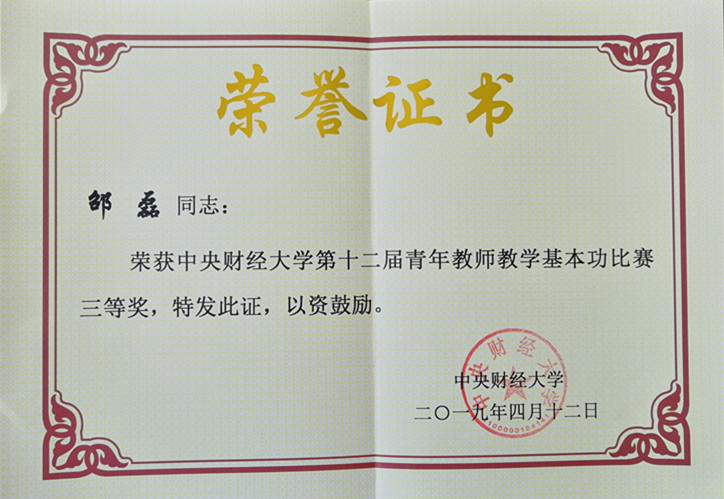 荣誉证书
邵磊同志：
荣获中央财经大学第十二届青年教师教学基本功比赛
三等奖，特发此证，以资鼓励。
中央财经大学
中央财经大学
二〇一九年四月十二日